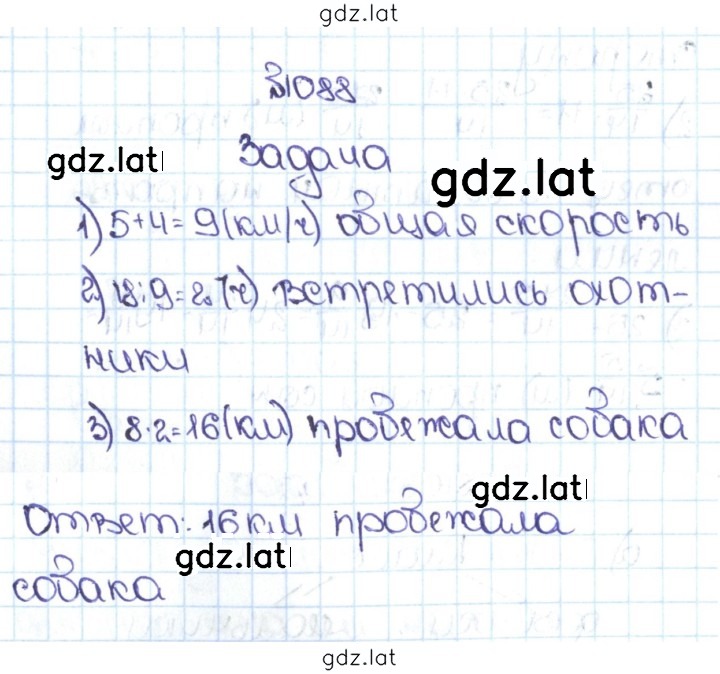 gdz.lat
№1088
Задача
gdz.lat
gdz.lat
1) 5+4=9(км/ч) общая скорость
2) 18:9=2.(ч) встретились охот-
ники
3) 8·2=16(км) пробежала собака
gdz.lat
Ответ: 16 км пробежала
gdz.lat
собака
gdz.lat